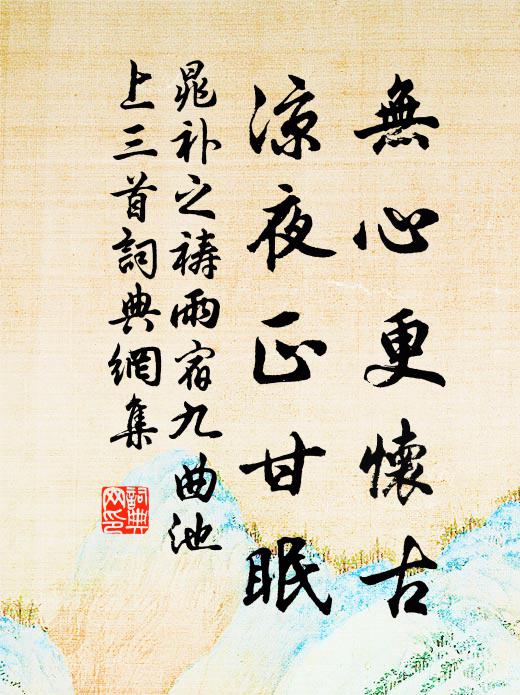 無心更懷古
涼夜正甘眠
晁补之祷雨宿九曲池
上三首詞典網集
詞典
网印